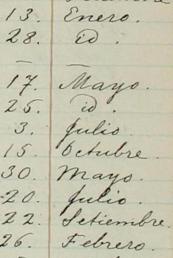 13. Enero.
28. id.
17. Mayo.
25. id.
3. Julio.
15. Octubre.
30. Mayo.
20. Julio.
22. Setiembre.
26. Febrero.